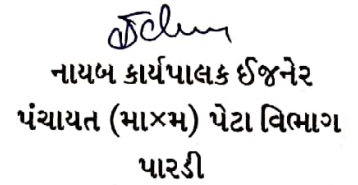 નાયબ કાર્યપાલક ઈજનેર
પંચાયત (મા×મ) પેટા વિભાગ
પારડી